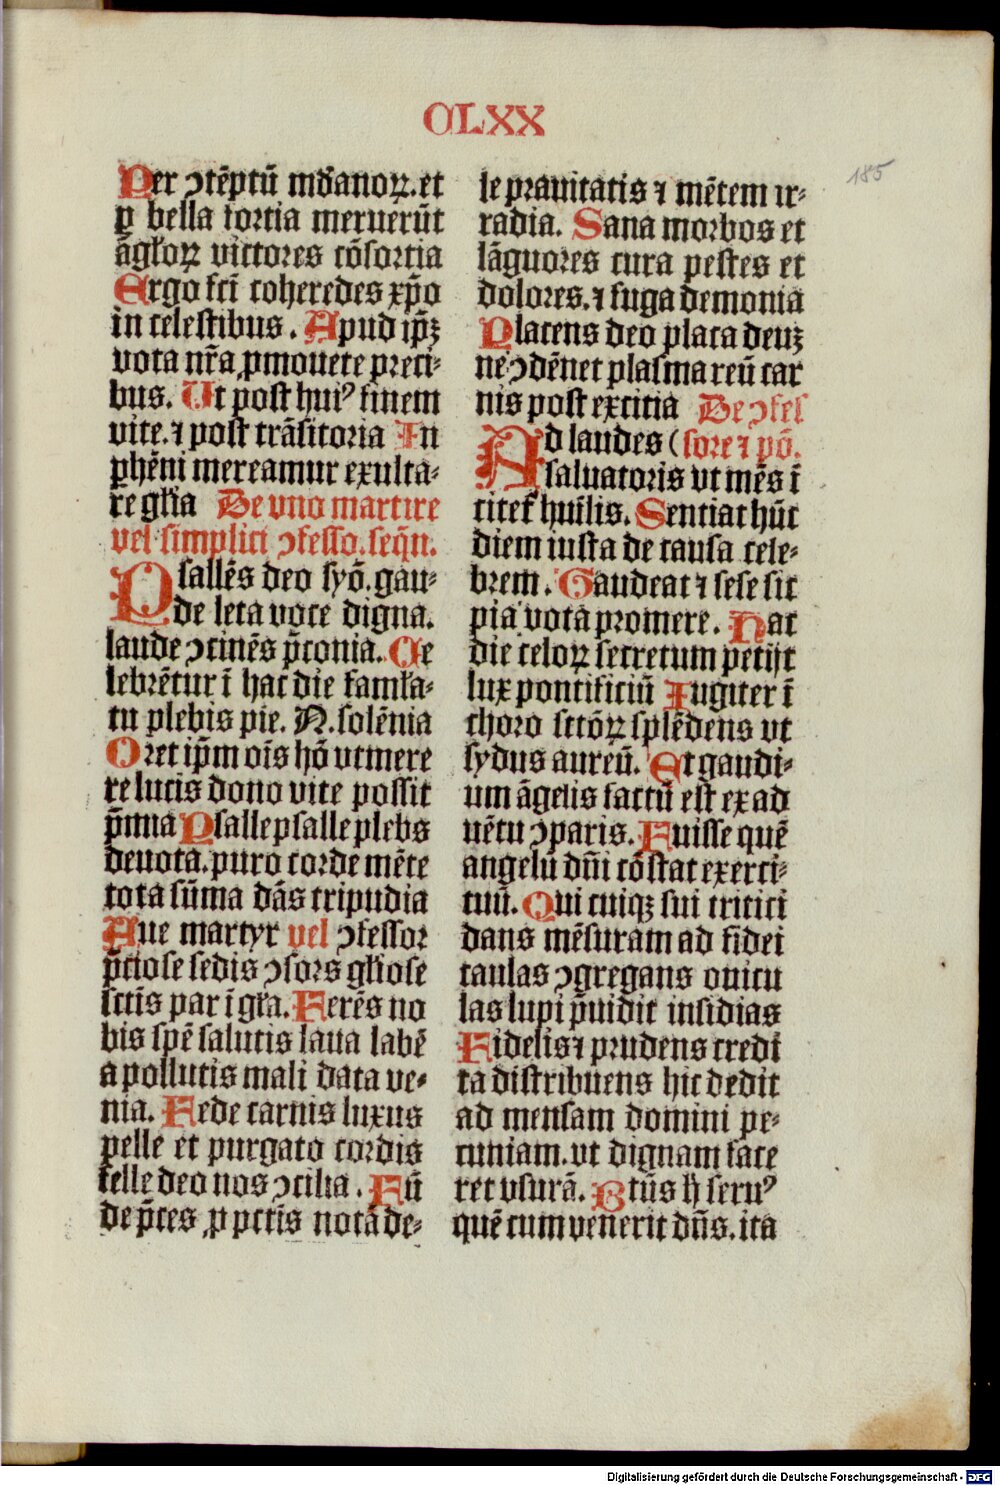 CLXX
185
Per ɔtēptū mūdanoꝝ. et
ꝑ bella fortia meruerūt
āgłoꝝ victores cōsortia
Ergo scī coheredes xp̄o
in celestibus. Apud ip̄ꝫ
vota nr̄a ꝓmouete preci-
bus. Ut post huiꝰ finem
vite. ⁊ post trāsitoria In
ꝑhēni mereamur exulta-
re głia De vno martire
vel simplici ɔfesso. seq̄n.
Psallēs deo syō. gau-
de leta voce digna.
laude ɔcinēs p̄conia. Ce
lebrētur ī hac die famła-
tu plebis pie. N. solēnia
Oret ip̄m oīs hō vt mere
re lucis dono vite possit
p̄mia Psalle psalle plebs
deuota. puro corde mēte
tota sūma dās tripudia
Aue martyr vel ɔfessor
p̄ciose sedis ɔsors głiose
sctīs par ī gr̄a. Ferēs no
bis spē salutis laua labē
a pollutis mali data ve-
nia. Fede carnis luxus
pelle et purgato cordis
felle deo nos ɔcilia. Fū
de p̄ces ꝓ pctīs nota de-
le prauitatis ⁊ mētem ir-
radia. Sana morbos et
lāguores cura pestes et
dolores. ⁊ fuga demonia
Placens deo placa deuꝫ
ne ɔdēnet plasma reū car
nis post exicia De ɔfes
Ad laudes (sore ⁊ pō.
saluatoris vt mēs ī
citet huīlis. Sentiat hūc
diem iusta de causa cele-
brem. Gaudeat ⁊ sese sic
pia vota promere. Hac
die celoꝝ secretum petijt
lux pontificiū Iugiter ī
choro sctōꝝ splēdens vt
sydus aureū. Et gaudi-
um āgelis factū est ex ad
uētu ɔparis. Fuisse quē
angelū dn̄i cōstat exerci-
tuū. Qui cuiqꝫ sui tritici
dans mēsuram ad fidei
caulas ɔgregans ouicu
las lupi p̄uidit insidias
Fidelis ⁊ prudens credi
ta distribuens hic dedit
ad mensam domini pe-
cuniam. vt dignam face
ret vsurā. Btūs h̄ seruꝰ
quē cum venerit dn̄s. ita
Digitalisierung gefördert durch die Deutsche Forschungsgemeinschaft - DFG